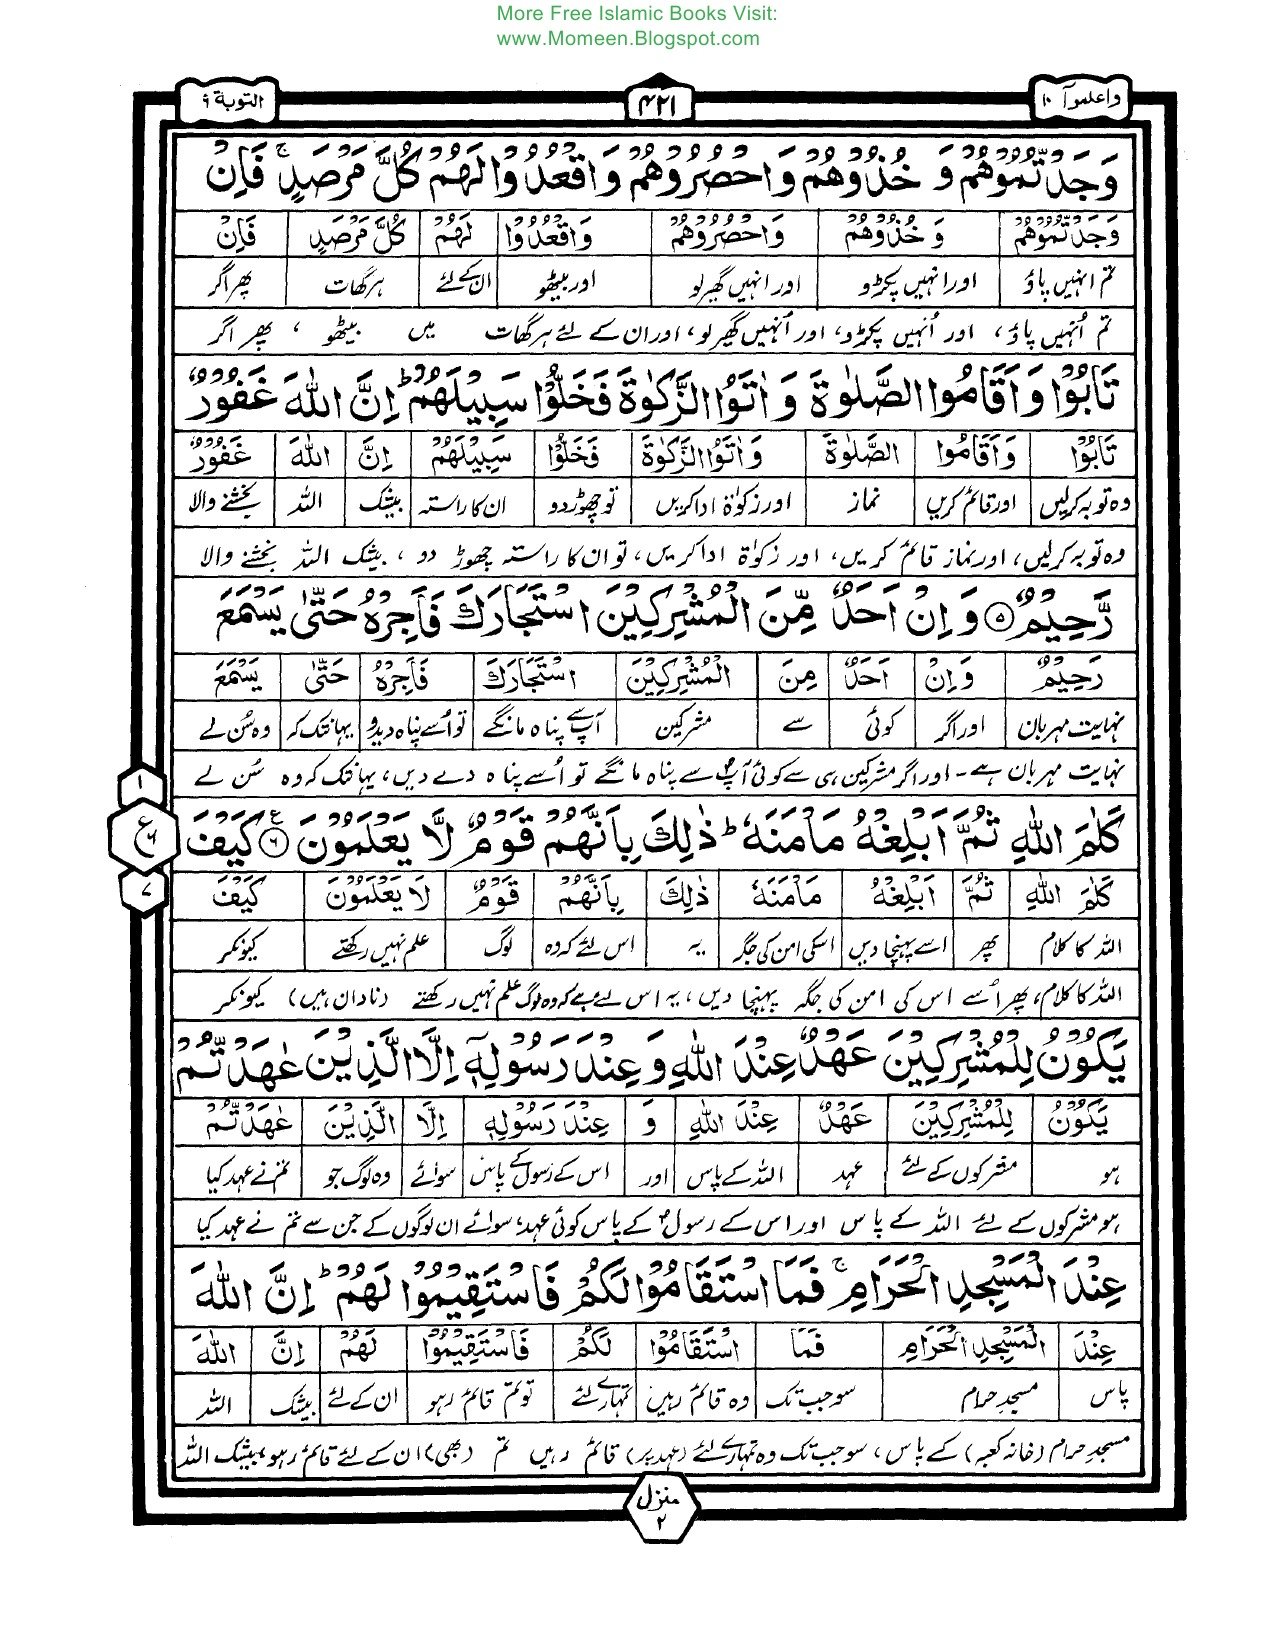 More Free Islamic Books Visit:
www.Momeen.Blogspot.com
واعلموآ ۱۰
۴۲۱
التوبة ۹
وَجَدْتُّمُوْهُمْ وَ خُذُوْهُمْ وَاحْصُرُوْهُمْ وَاقْعُدُوْا لَهُمْ كُلَّ مَرْصَدٍ ۚ فَاِنْ
وَجَدْتُّمُوْهُمْ وَ خُذُوْهُمْ وَاحْصُرُوْهُمْ وَاقْعُدُوْا لَهُمْ كُلَّ مَرْصَدٍ فَاِنْ
تم انہیں پاؤ اور انہیں پکڑو اور انہیں گھیر لو اور بیٹھو ان کے لئے ہر گھات پھر اگر
تم اُنہیں پاؤ، اور اُنہیں پکڑو، اور اُنہیں گھیر لو، اور ان کے لئے ہر گھات میں بیٹھو ، پھر اگر
تَابُوْا وَاَقَامُوا الصَّلٰوةَ وَ اٰتَوُا الزَّكٰوةَ فَخَلُّوْا سَبِيْلَهُمْ ؕ اِنَّ اللّٰهَ غَفُوْرٌ
تَابُوْا وَاَقَامُوا الصَّلٰوةَ وَاٰتَوُا الزَّكٰوةَ فَخَلُّوْا سَبِيْلَهُمْ اِنَّ اللّٰهَ غَفُوْرٌ
وہ توبہ کرلیں اور قائم کریں نماز اور زکوٰۃ ادا کریں تو چھوڑ دو ان کا راستہ بیشک اللہ بخشنے والا
وہ توبہ کرلیں، اور نماز قائم کریں، اور زکوٰۃ ادا کریں، تو ان کا راستہ چھوڑ دو ، بیشک اللہ بخشنے والا
رَّحِيْمٌ ۵ وَ اِنْ اَحَدٌ مِّنَ الْمُشْرِكِيْنَ اسْتَجَارَكَ فَاَجِرْهُ حَتّٰى يَسْمَعَ
رَحِيْمٌ وَاِنْ اَحَدٌ مِنَ الْمُشْرِكِيْنَ اسْتَجَارَكَ فَاَجِرْهُ حَتّٰى يَسْمَعَ
نہایت مہربان اور اگر کوئی سے مشرکین آپ سے پناہ مانگے تو اُسے پناہ دیدو یہانتک کہ وہ سُن لے
نہایت مہربان ہے۔ اور اگر مشرکین ہی سے کوئی آپ سے پناہ مانگے تو اُسے پناہ دے دیں، یہانتک کہ وہ سُن لے
۱
ع ۶
۷
كَلٰمَ اللّٰهِ ثُمَّ اَبْلِغْهُ مَاْمَنَهٗ ؕ ذٰلِكَ بِاَنَّهُمْ قَوْمٌ لَّا يَعْلَمُوْنَ ۶ كَيْفَ
كَلٰمَ اللّٰهِ ثُمَّ اَبْلِغْهُ مَاْمَنَهٗ ذٰلِكَ بِاَنَّهُمْ قَوْمٌ لَا يَعْلَمُوْنَ كَيْفَ
اللہ کا کلام پھر اسے پہنچا دیں اسکی امن کی جگہ یہ اس لئے کہ وہ لوگ علم نہیں رکھتے کیونکر
اللہ کا کلام، پھر اُسے اس کی امن کی جگہ پہنچا دیں، یہ اس لئے ہے کہ وہ لوگ علم نہیں رکھتے (نادان ہیں) کیونکر
يَكُوْنُ لِلْمُشْرِكِيْنَ عَهْدٌ عِنْدَ اللّٰهِ وَ عِنْدَ رَسُوْلِهٖۤ اِلَّا الَّذِيْنَ عٰهَدْتُّمْ
يَكُوْنُ لِلْمُشْرِكِيْنَ عَهْدٌ عِنْدَ اللّٰهِ وَ عِنْدَ رَسُوْلِهٖ اِلَّا الَّذِيْنَ عٰهَدْتُّمْ
ہو مشرکوں کے لئے عہد اللہ کے پاس اور اس کے رسول کے پاس سوائے وہ لوگ جو تم نے عہد کیا
ہو مشرکوں کے لئے اللہ کے پاس اور اس کے رسول کے پاس کوئی عہد، سوائے ان لوگوں کے جن سے تم نے عہد کیا
عِنْدَ الْمَسْجِدِ الْحَرَامِ ۚ فَمَا اسْتَقَامُوْا لَكُمْ فَاسْتَقِيْمُوْا لَهُمْ ؕ اِنَّ اللّٰهَ
عِنْدَ الْمَسْجِدِ الْحَرَامِ فَمَا اسْتَقَامُوْا لَكُمْ فَاسْتَقِيْمُوْا لَهُمْ اِنَّ اللّٰهَ
پاس مسجد حرام سو جب تک وہ قائم رہیں تمہارے لئے تو تم قائم رہو ان کے لئے بیشک اللہ
مسجد حرام (خانہ کعبہ) کے پاس، سو جب تک وہ تمہارے لئے (عہد پر) قائم رہیں تم (بھی) ان کے لئے قائم رہو، بیشک اللہ
منزل
۲